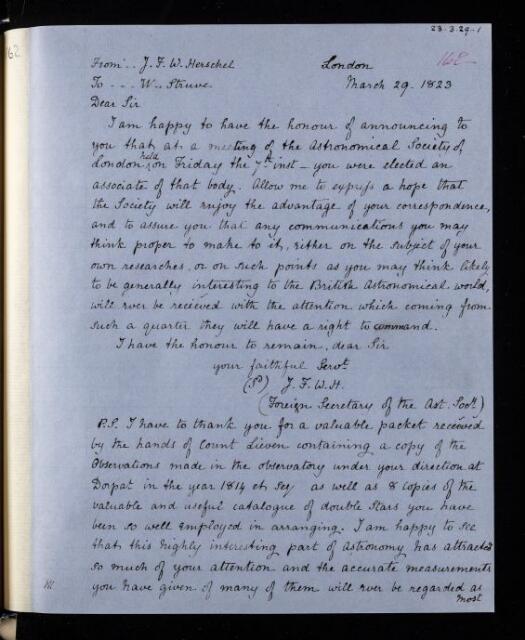 23.3.29.1
162
162
From... J. F. W. Herschel London
To - - - W. Struve. March 29. 1823
Dear Sir
I am happy to have the honour of announcing to
you that, at a meeting of the Astronomical Society of
London held on Friday the 7th inst - you were elected an
associate of that body. Allow me to express a hope that
the Society will enjoy the advantage of your correspondence,
and to assure you that any communications you may
think proper to make to it, either on the subject of your
own researches, or on such points as you may think likely
to be generally interesting to the British Astronomical world,
will ever be recieved with the attention which coming from
such a quarter they will have a right to command.
I have the honour to remain, dear Sir
your faithful Servt.
(Sd) J. F. W. H.
(Foreign Secretary of the Ast. Socy.)
P.S. I have to thank you for a valuable packet received
by the hands of Count Lieven containing a copy of the
Observations made in the observatory under your direction at
Dorpat in the year 1814 et. Seq as well as 8 copies of the
valuable and useful catalogue of double Stars you have
been so well employed in arranging. I am happy to see
that this highly interesting part of astronomy has attracted
so much of your attention and the accurate measurements
you have given of many of them will ever be regarded as
most